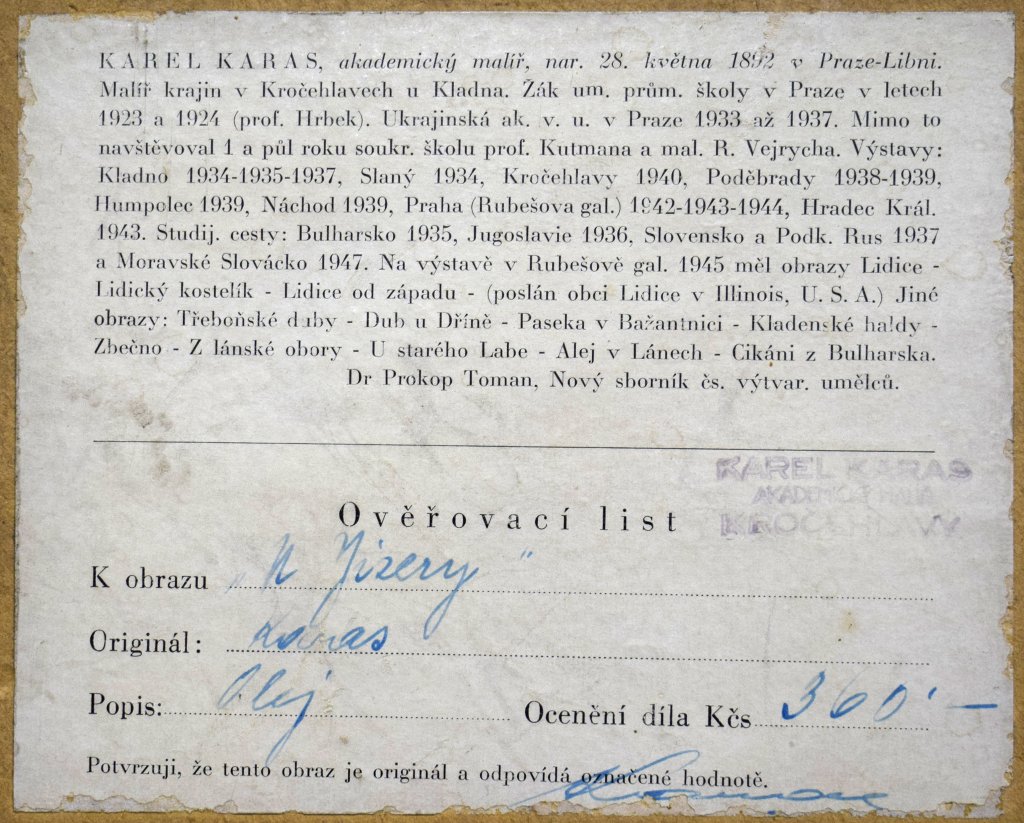 KAREL KARAS, akademický malíř, nar. 28. května 1892 v Praze-Libni.
Malíř krajin v Kročehlavech u Kladna. Žák um. prům. školy v Praze v letech
1923 a 1924 (prof. Hrbek). Ukrajinská ak. v. u. v Praze 1933 až 1937. Mimo to
navštěvoval 1 a půl roku soukr. školu prof. Kutmana a mal. R. Vejrycha. Výstavy:
Kladno 1934-1935-1937, Slaný 1934, Kročehlavy 1940, Poděbrady 1938-1939,
Humpolec 1939, Náchod 1939, Praha (Rubešova gal.) 1942-1943-1944, Hradec Král.
1943. Studij. cesty: Bulharsko 1935, Jugoslavie 1936, Slovensko a Podk. Rus 1937
a Moravské Slovácko 1947. Na výstavě v Rubešově gal. 1945 měl obrazy Lidice -
Lidický kostelík - Lidice od západu - (poslán obci Lidice v Illinois, U. S. A.) Jiné
obrazy: Třeboňské duby - Dub u Dříně - Paseka v Bažantnici - Kladenské haldy -
Zbečno - Z lánské obory - U starého Labe - Alej v Lánech - Cikáni z Bulharska.
Dr Prokop Toman, Nový sborník čs. výtvar. umělců.
KAREL KARAS
AKADEMICKÝ MALÍŘ
KROČEHLAVY
Ověřovací list
K obrazu „U Jizery"
Originál: Karas
Popis: Olej Ocenění díla Kčs 360'-
Potvrzuji, že tento obraz je originál a odpovídá označené hodnotě.